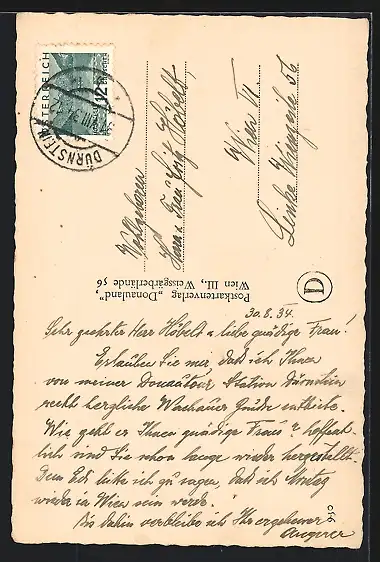 ÖSTERREICH
12
DÜRNSTEIN
Wohlgeboren
Herrn u. Frau Erich Höbelt
Wien VI
Linke Wienzeile 56
Postkartenverlag „Donauland",
Wien III., Weissgärberlände 56
D
30.8.34.
Sehr geehrter Herr Höbelt u. liebe gnädige Frau!
Erlauben Sie mir, daß ich Ihnen
von meiner Donautour Station Dürnstein
recht herzliche Wachauer Grüße entbiete.
Wie geht es Ihnen gnädige Frau? Hoffent-
lich sind Sie schon lange wieder hergestellt.
Dem Edi bitte ich zu sagen, daß ich Montag
wieder in Wien sein werde.
Bis dahin verbleibe ich Ihr ergebener